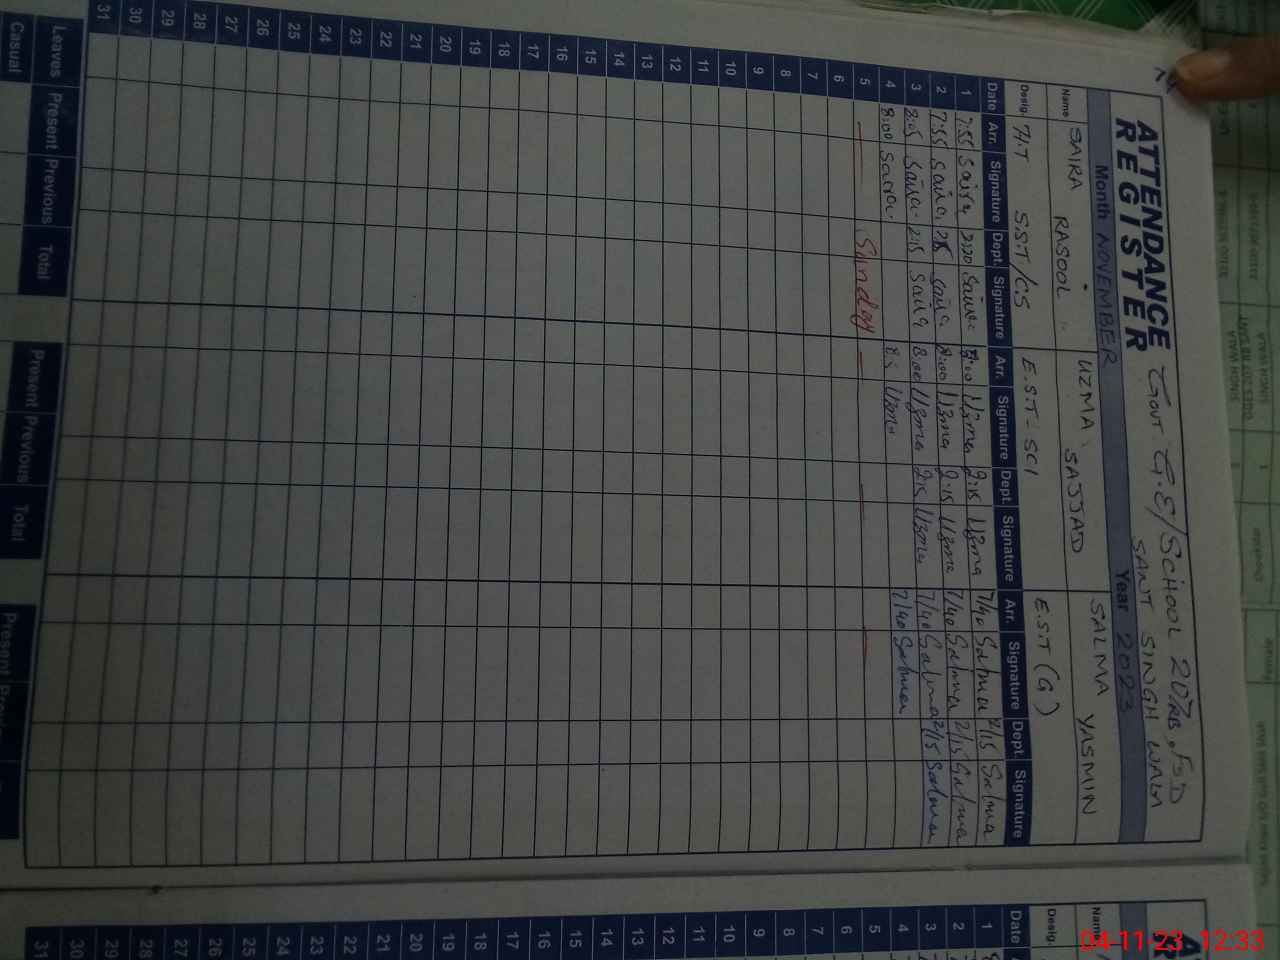 ATTENDANCE REGISTER
Govt. G.E/School 207RB, FSD
SANT SINGH WALA
Month NOVEMBER Year 2023
Name SAIRA RASOOL UZMA SAJJAD SALMA YASMIN
Desig. H.T S.S.T/CS E.S.T - SCI E.S.T (G)
Date Arr. Signature Dept. Signature Arr. Signature Dept. Signature Arr. Signature Dept. Signature
1 7:55 Saira 2:20 Saira 8:00 Uzma 2:15 Uzma 7/40 Salma 2/15 Salma
2 7:55 Saira Saira 8:00 Uzma 2:15 Uzma 7/40 Salma 2/15 Salma
3 8:05 Saira 2:15 Saira 8:00 Uzma 2:15 Uzma 7/40 Salma 2/15 Salma
4 8:00 Saira Uzma 7/40 Salma
5 Sunday
6
7
8
9
10
11
12
13
14
15
16
17
18
19
20
21
22
23
24
25
26
27
28
29
30
31
Leaves Present Previous Total Present Previous Total Present
Casual
Name
Desig.
Date
1
2
3
4
5
6
7
8
9
10
11
12
13
14
15
16
17
18
19
20
21
22
23
24
25
26
27
28
29
30
31
04-11-23 12:33